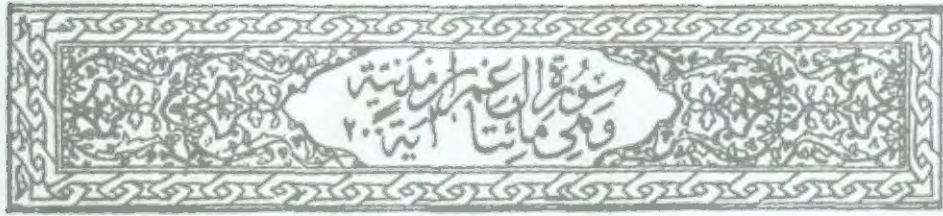 سُورَةُ آلِ عِمْرَان مَدَنِيَّة
وَهِيَ مِائَتَا آيَة ٢٠٠